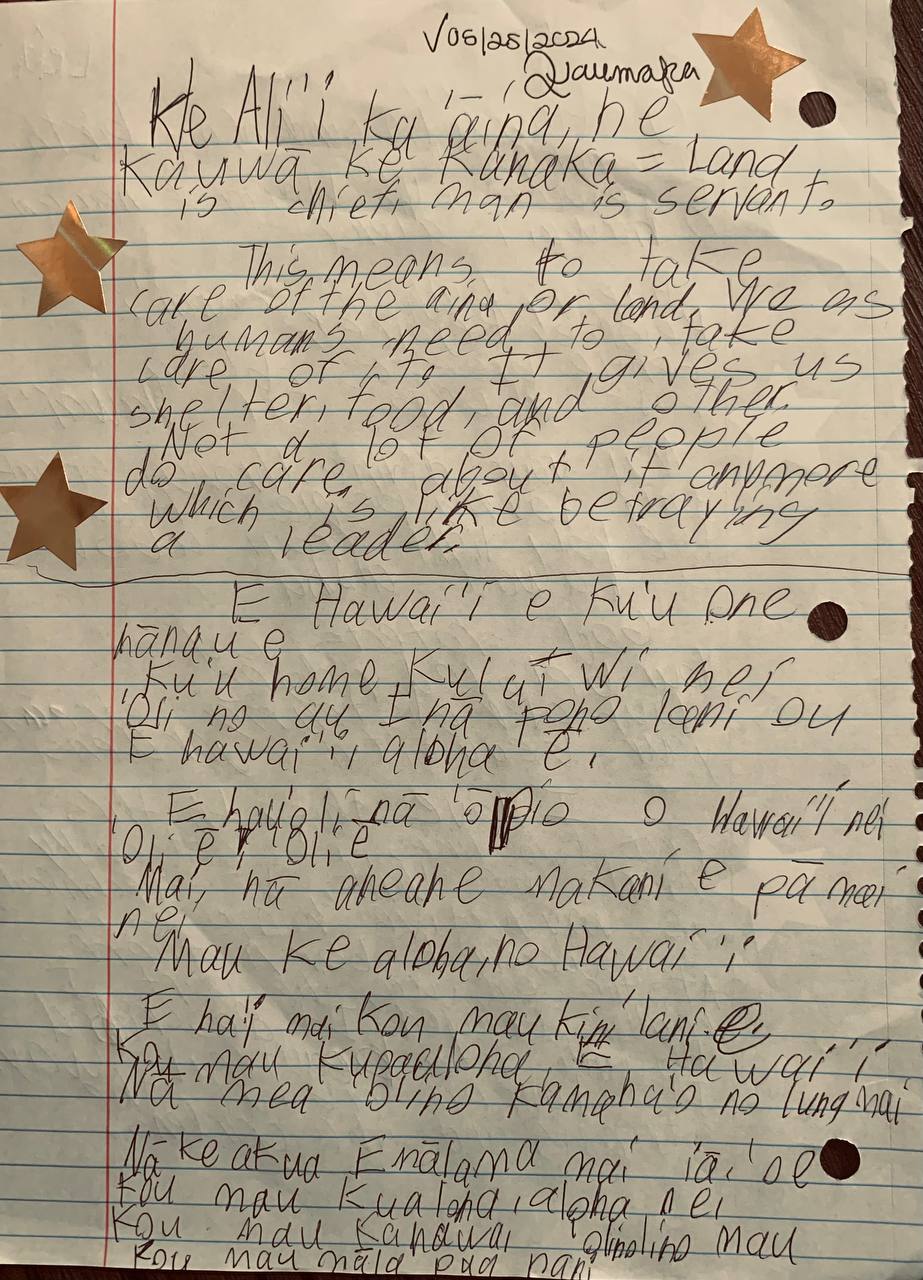 √05/25/2024
Kaumaka
He Ali'i ka 'āina, he
kauwā ke Kanaka = Land
is chief, man is servant.
This means to take
care of the aina or land. We as
humans need to take
care of it. It gives us
shelter, food, and other
Not a lot of people
do care about it anymore
which is like betraying
a leader.
E Hawai'i e Ku'u One
hānau e
Ku'u home Kulaī wi nei
Oli no au I nā pono lani ou
E hawai'i, aloha ē.
E hau'oli nā 'ōpio o Hawai'i nei
'Oli ē! 'Oli ē
Mai, nā aheahe makani e pā mai
nei
Mau ke aloha, no Hawai'i
E ha'i mai kou mau kini lani e
Kou mau Kupa aloha, E Hawai'i
Nā mea ōlino Kamaha'o no luna mai
Nā ke akua E mālama mai iā 'oe
Kou mau Kualona, aloha nei
Kou mau Kahawai 'ōlinolino mau
Kou mau māla pua nani